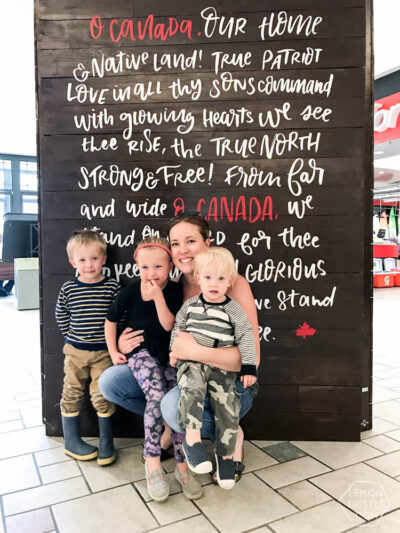 O CANADA. OUR HOME
& NATIVE LAND! TRUE PATRIOT
LOVE in ALL THY SONS COMMAND
with glowing Hearts we see
thee RISE, the TRUE NORTH
STRONG & FREE! FROM far
and wide O CANADA, we
for thee
GLORIOUS
we Stand
LEMON
THISTLE